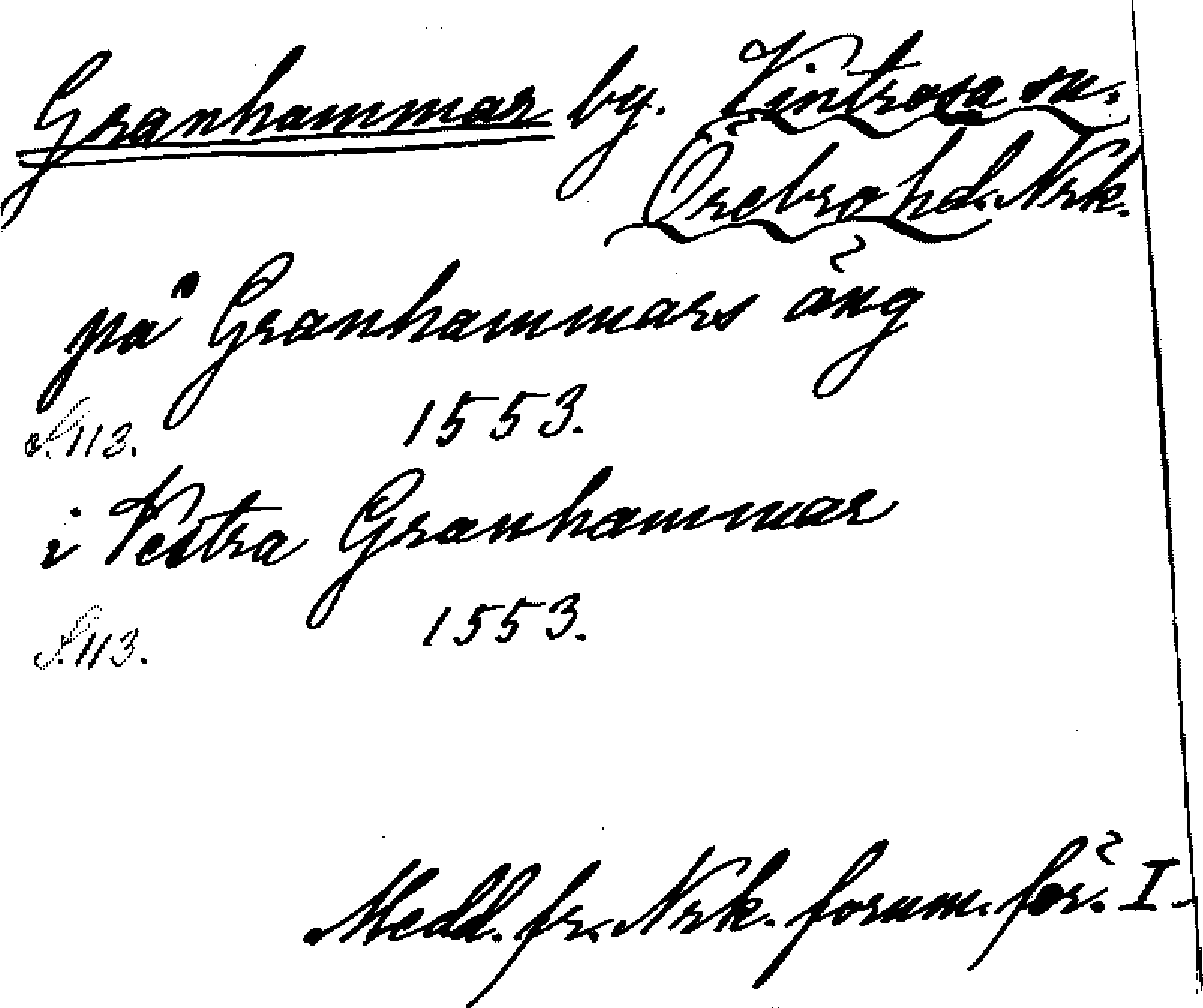 Granhammar by. Vintrosa sn.
Örebro hd. Nrk.
på Granhammars äng
S. 113. 1553.
i Vestra Granhammar
S. 113. 1553.
Medd. fr. Nrk. fornm. för. I.